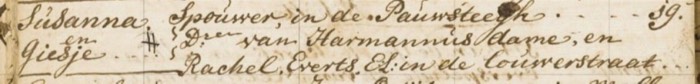 Susanna Spouwer in de Pauwsteegh . . . . 19.
en # Dren van Harmannus dame, en
Giesje . . Rachel Everts El: in de Couwerstraat . .